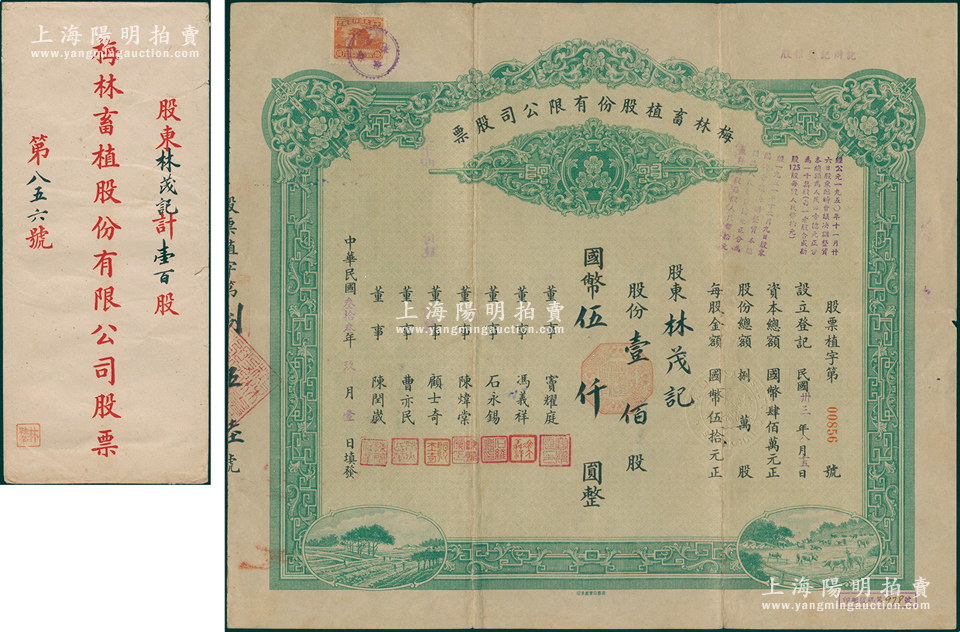 上海陽明拍賣
www.yangmingauction.com
股東林茂記計壹百股
梅林畜植股份有限公司股票
第八五六號
梅林畜植股份有限公司股票
股票植字第 00856 號
設立登記 民國卅三年八月十五日
資本總額 國幣肆佰萬元正
股份總額 捌萬股
每股金額 國幣伍拾元正
股東林茂記
股份壹佰股
國幣伍仟圓整
董事 竇耀庭
董事 馮義祥
董事 石永錫
董事 陳煒棠
董事 顧士奇
董事 曹亦民
董事 陳閏崴
中華民國叁拾叁年玖月壹日填發
股票植字第捌伍陸號
上海陽明拍賣
www.yangmingauction.com
上海陽明拍賣
www.yangmingauction.com